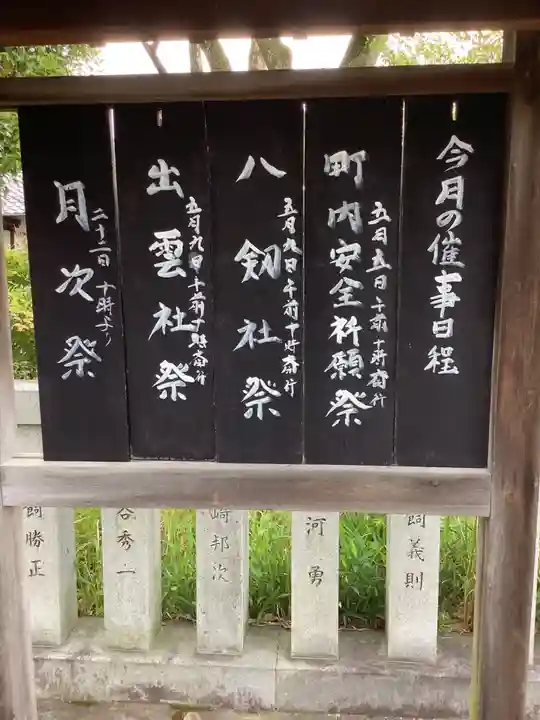 今月の催事日程
町内安全祈願祭
五月五日午前十時斎行
八剱社祭
五月九日午前十時斎行
出雲社祭
五月九日午前十時斎行
月次祭
二十二日十時より
飼義則
河勇
崎邦次
谷秀二
飼勝正